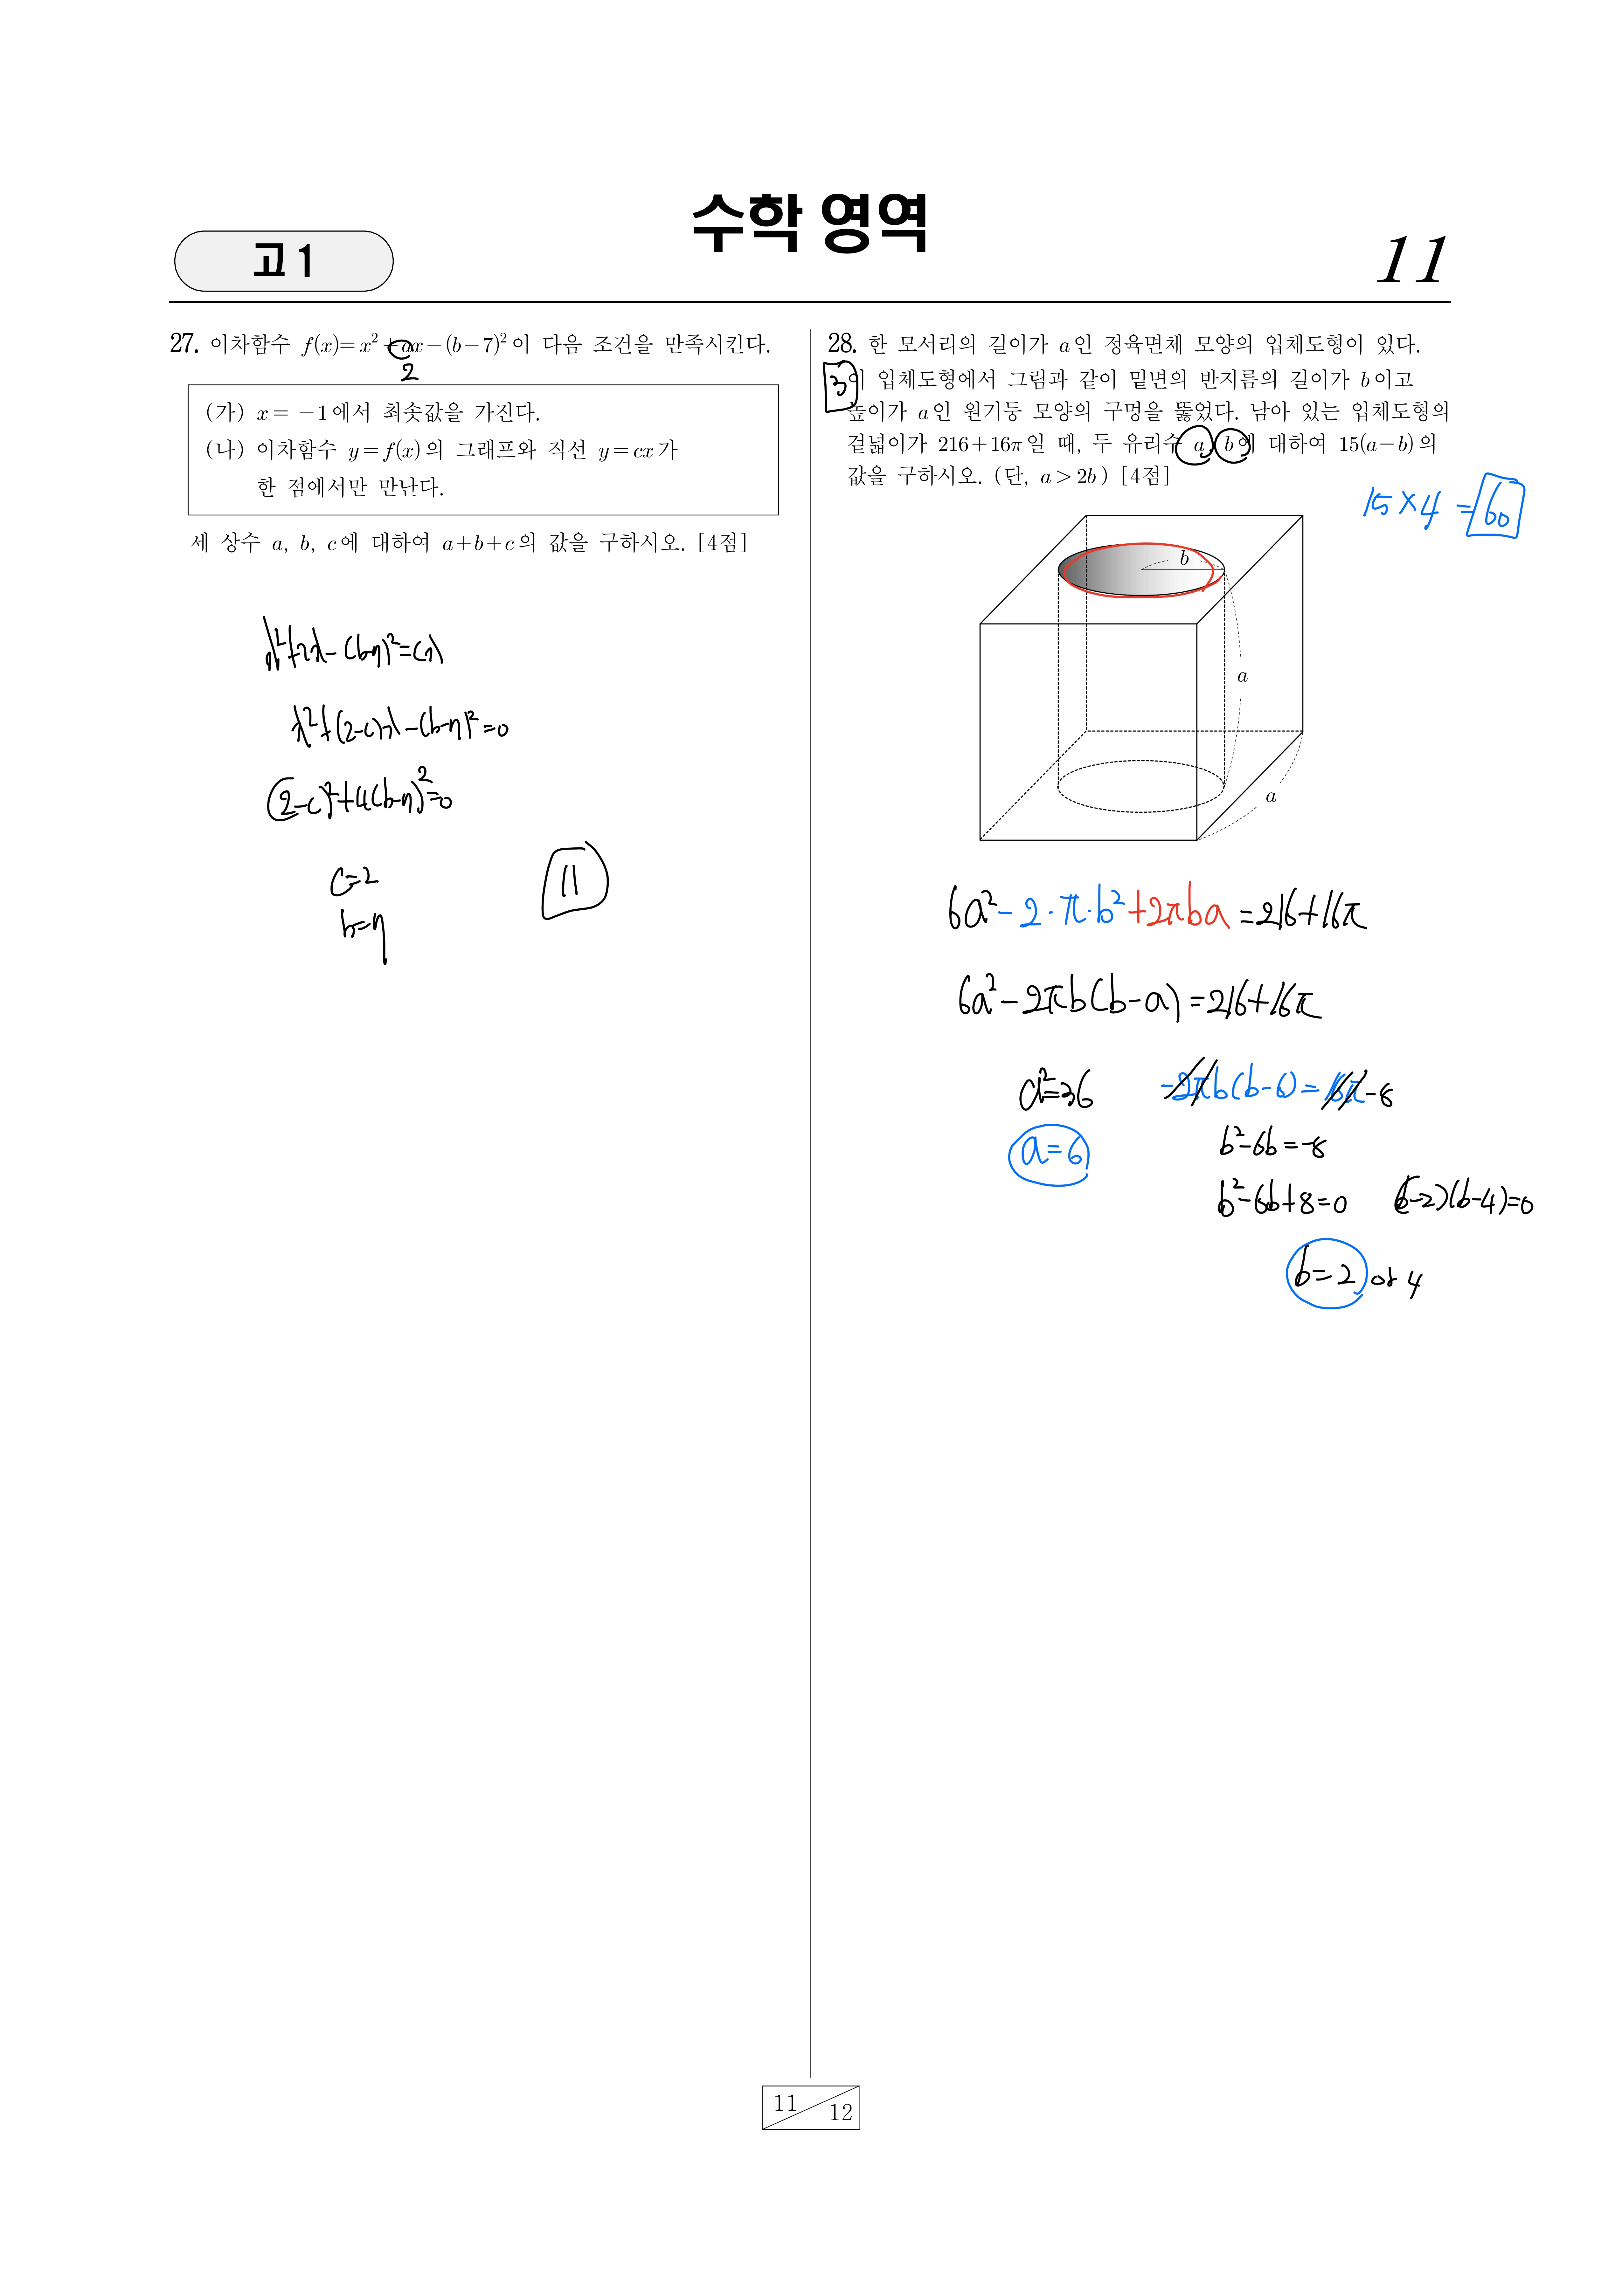 수학 영역
고 1
11
27. 이차함수 f(x)=x²+ax-(b-7)²이 다음 조건을 만족시킨다.
2
(가) x=-1에서 최솟값을 가진다.
(나) 이차함수 y=f(x)의 그래프와 직선 y=cx가
한 점에서만 만난다.
세 상수 a, b, c에 대하여 a+b+c의 값을 구하시오. [4점]
x²+2x-(b-7)²=cx
x²+(2-c)x-(b-7)²=0
(2-c)²+4(b-7)²=0
c=2
b=7
11
28. 한 모서리의 길이가 a인 정육면체 모양의 입체도형이 있다.
3
이 입체도형에서 그림과 같이 밑면의 반지름의 길이가 b이고
높이가 a인 원기둥 모양의 구멍을 뚫었다. 남아 있는 입체도형의
겉넓이가 216+16π일 때, 두 유리수 a, b에 대하여 15(a-b)의
값을 구하시오. (단, a>2b) [4점]
15×4=60
b
a
a
6a²-2·π·b²+2πba=216+16π
6a²-2πb(b-a)=216+16π
a²=36
-2πb(b-6)=16π-8
a=6
b²-6b=-8
b²-6b+8=0
(b-2)(b-4)=0
b=2 or 4
11
12